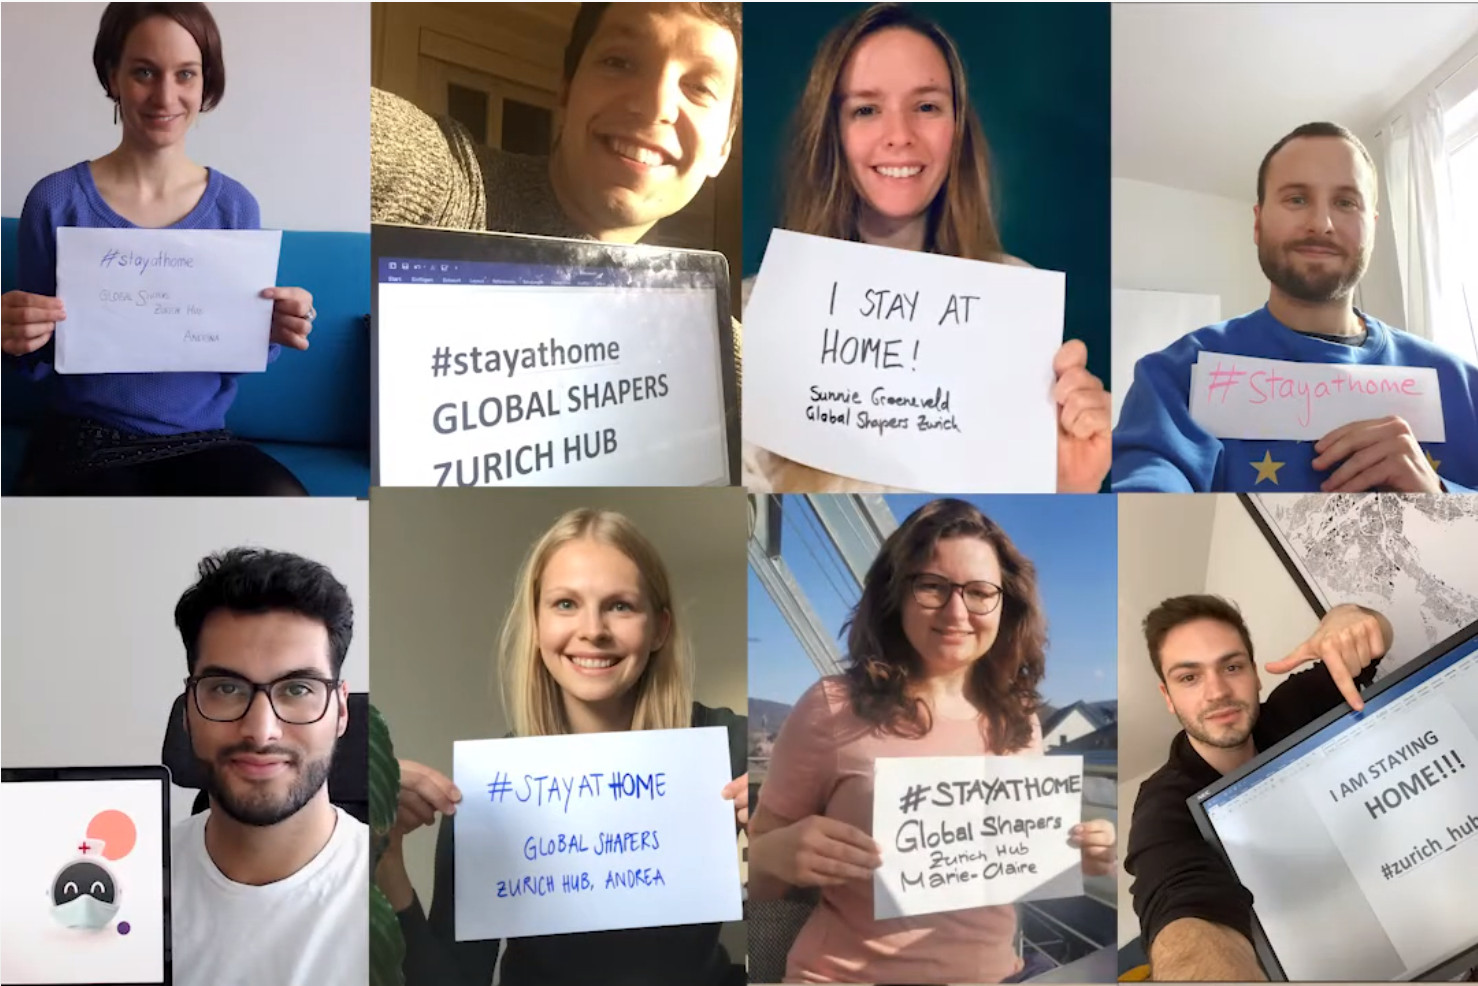 #stayathome
GLOBAL SHAPERS
ZURICH HUB
ANDRINA
#stayathome
GLOBAL SHAPERS
ZURICH HUB
I STAY AT
HOME!
Sunnie Groeneveld
Global Shapers Zurich
#Stayathome
#STAYATHOME
GLOBAL SHAPERS
ZURICH HUB, ANDREA
#STAYATHOME
Global Shapers
Zurich Hub
Marie-Claire
I AM STAYING
HOME!!!
#zurich_hub